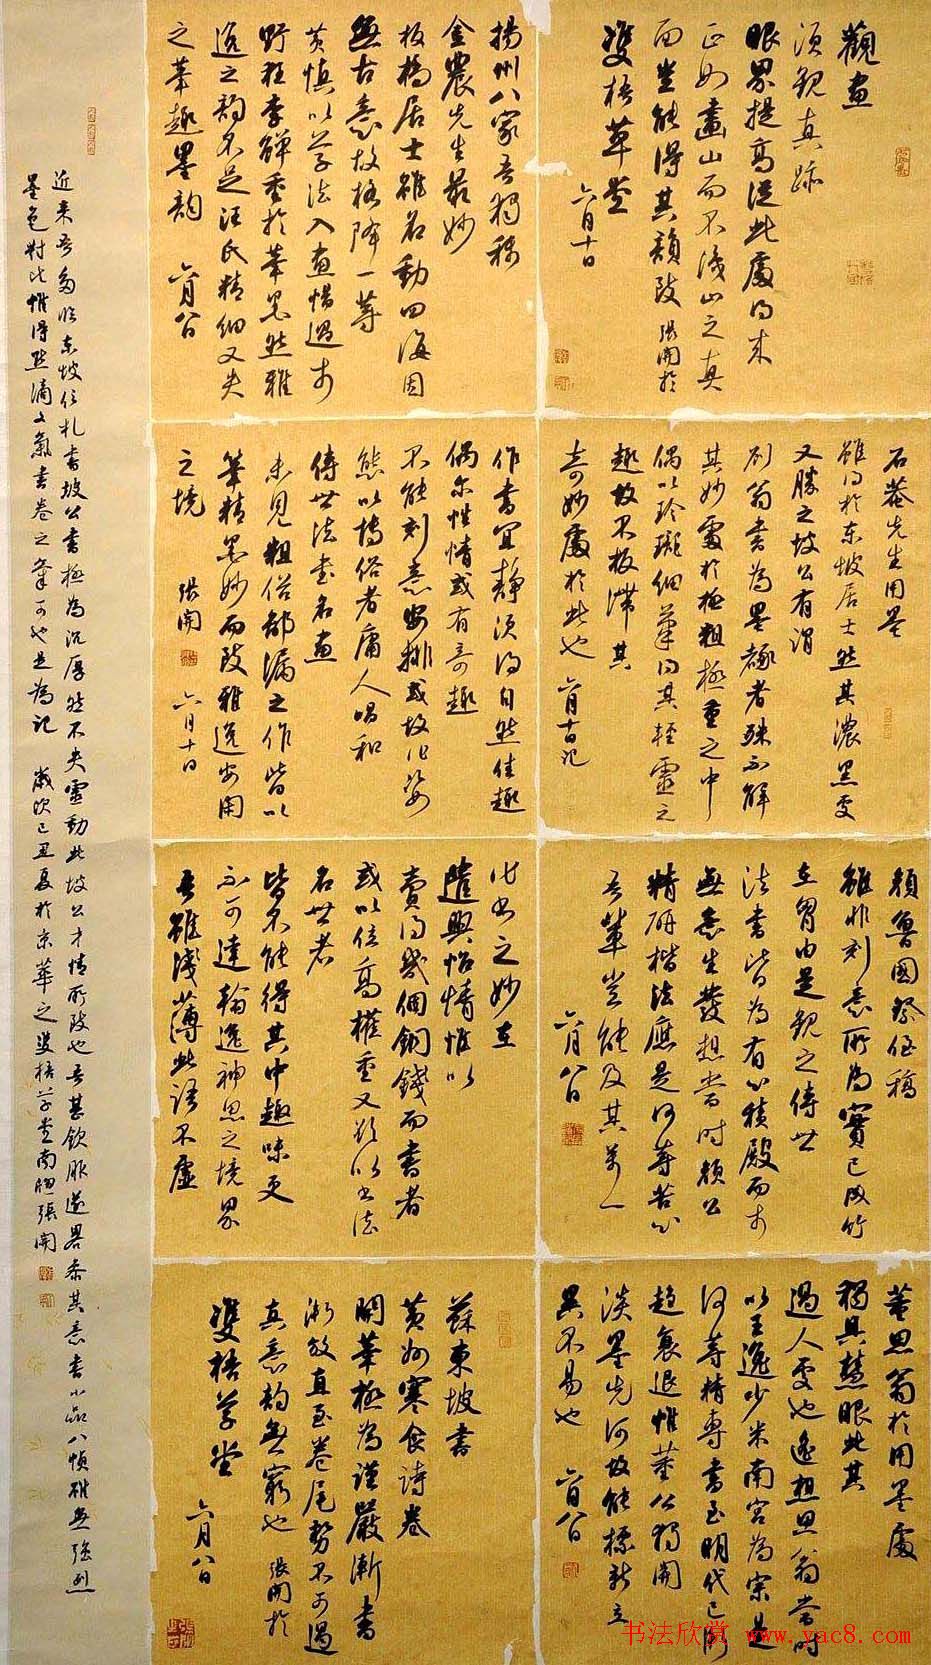 觀畫
須觀真跡
眼界提高從此處得來
正如畫山而不識山之真
面豈能得其韻致 張開於
雙梧草堂
六月十日
揚州八家吾獨稱
金農先生最妙
板橋居士雖名動四海因
無古意故格降一等
黃慎以草法入畫惜過於
野狂李鱓重於筆墨然雅
逸之韵不足汪氏精細又失
之筆趣墨韵 六月八日
石菴先生用墨
雖得於東坡居士然其濃黑處
又勝之坡公有謂
劉翁書為墨豬者殊不解
其妙處於極粗極重之中
偶以玲瓏細筆得其輕靈之
趣故不板滯其
奇妙處於此也 六月十日記
作書宜靜須得自然佳趣
偶尔性情或有奇趣
不能刻意安排或故作姿
態以博俗者庸人唱和
傳世法書名畫
未見粗俗鄙漏之作皆以
筆精墨妙而致雅逸安閑
之境 張開 六月十日
顏魯國祭侄稿
雖非刻意所為實已成竹
在胃由是觀之傳世
法書皆為有心積殿而於
無意生發想當時顏公
精研楷法應是何等苦心
吾輩豈能及其萬一
六月八日
作書之妙在
遣興怡情惟以
賣得幾個銅錢而書者
或以位高權重又欲以書法
名世者
皆不能得其中趣味更
不可達翰逸神思之境界
吾雖淺薄此語不虛
董思翁於用墨處
獨具慧眼此其
過人處也遙想思翁當時
以王逸少米南宮為宗是
何等精專書至明代已漸
趨衰退惟董公獨開
淡墨先河故能標新立
異不易也 六月八日
蘇東坡書
黃州寒食詩卷
開筆極為謹嚴漸書
漸放直至卷尾勢不可遏
真意韵無窮也 張開於
雙梧草堂
六月八日
近來吾多臨東坡信札書坡公書極為沉厚然不失靈動此坡公才情所致也吾甚欽服遂略參其意書小品八幀雖無強烈
墨色對比惟得點滴文氣書卷之氣可也是為記 歲次己丑夏於京華之雙梧草堂南窗張開
书法欣赏 www.yac8.com